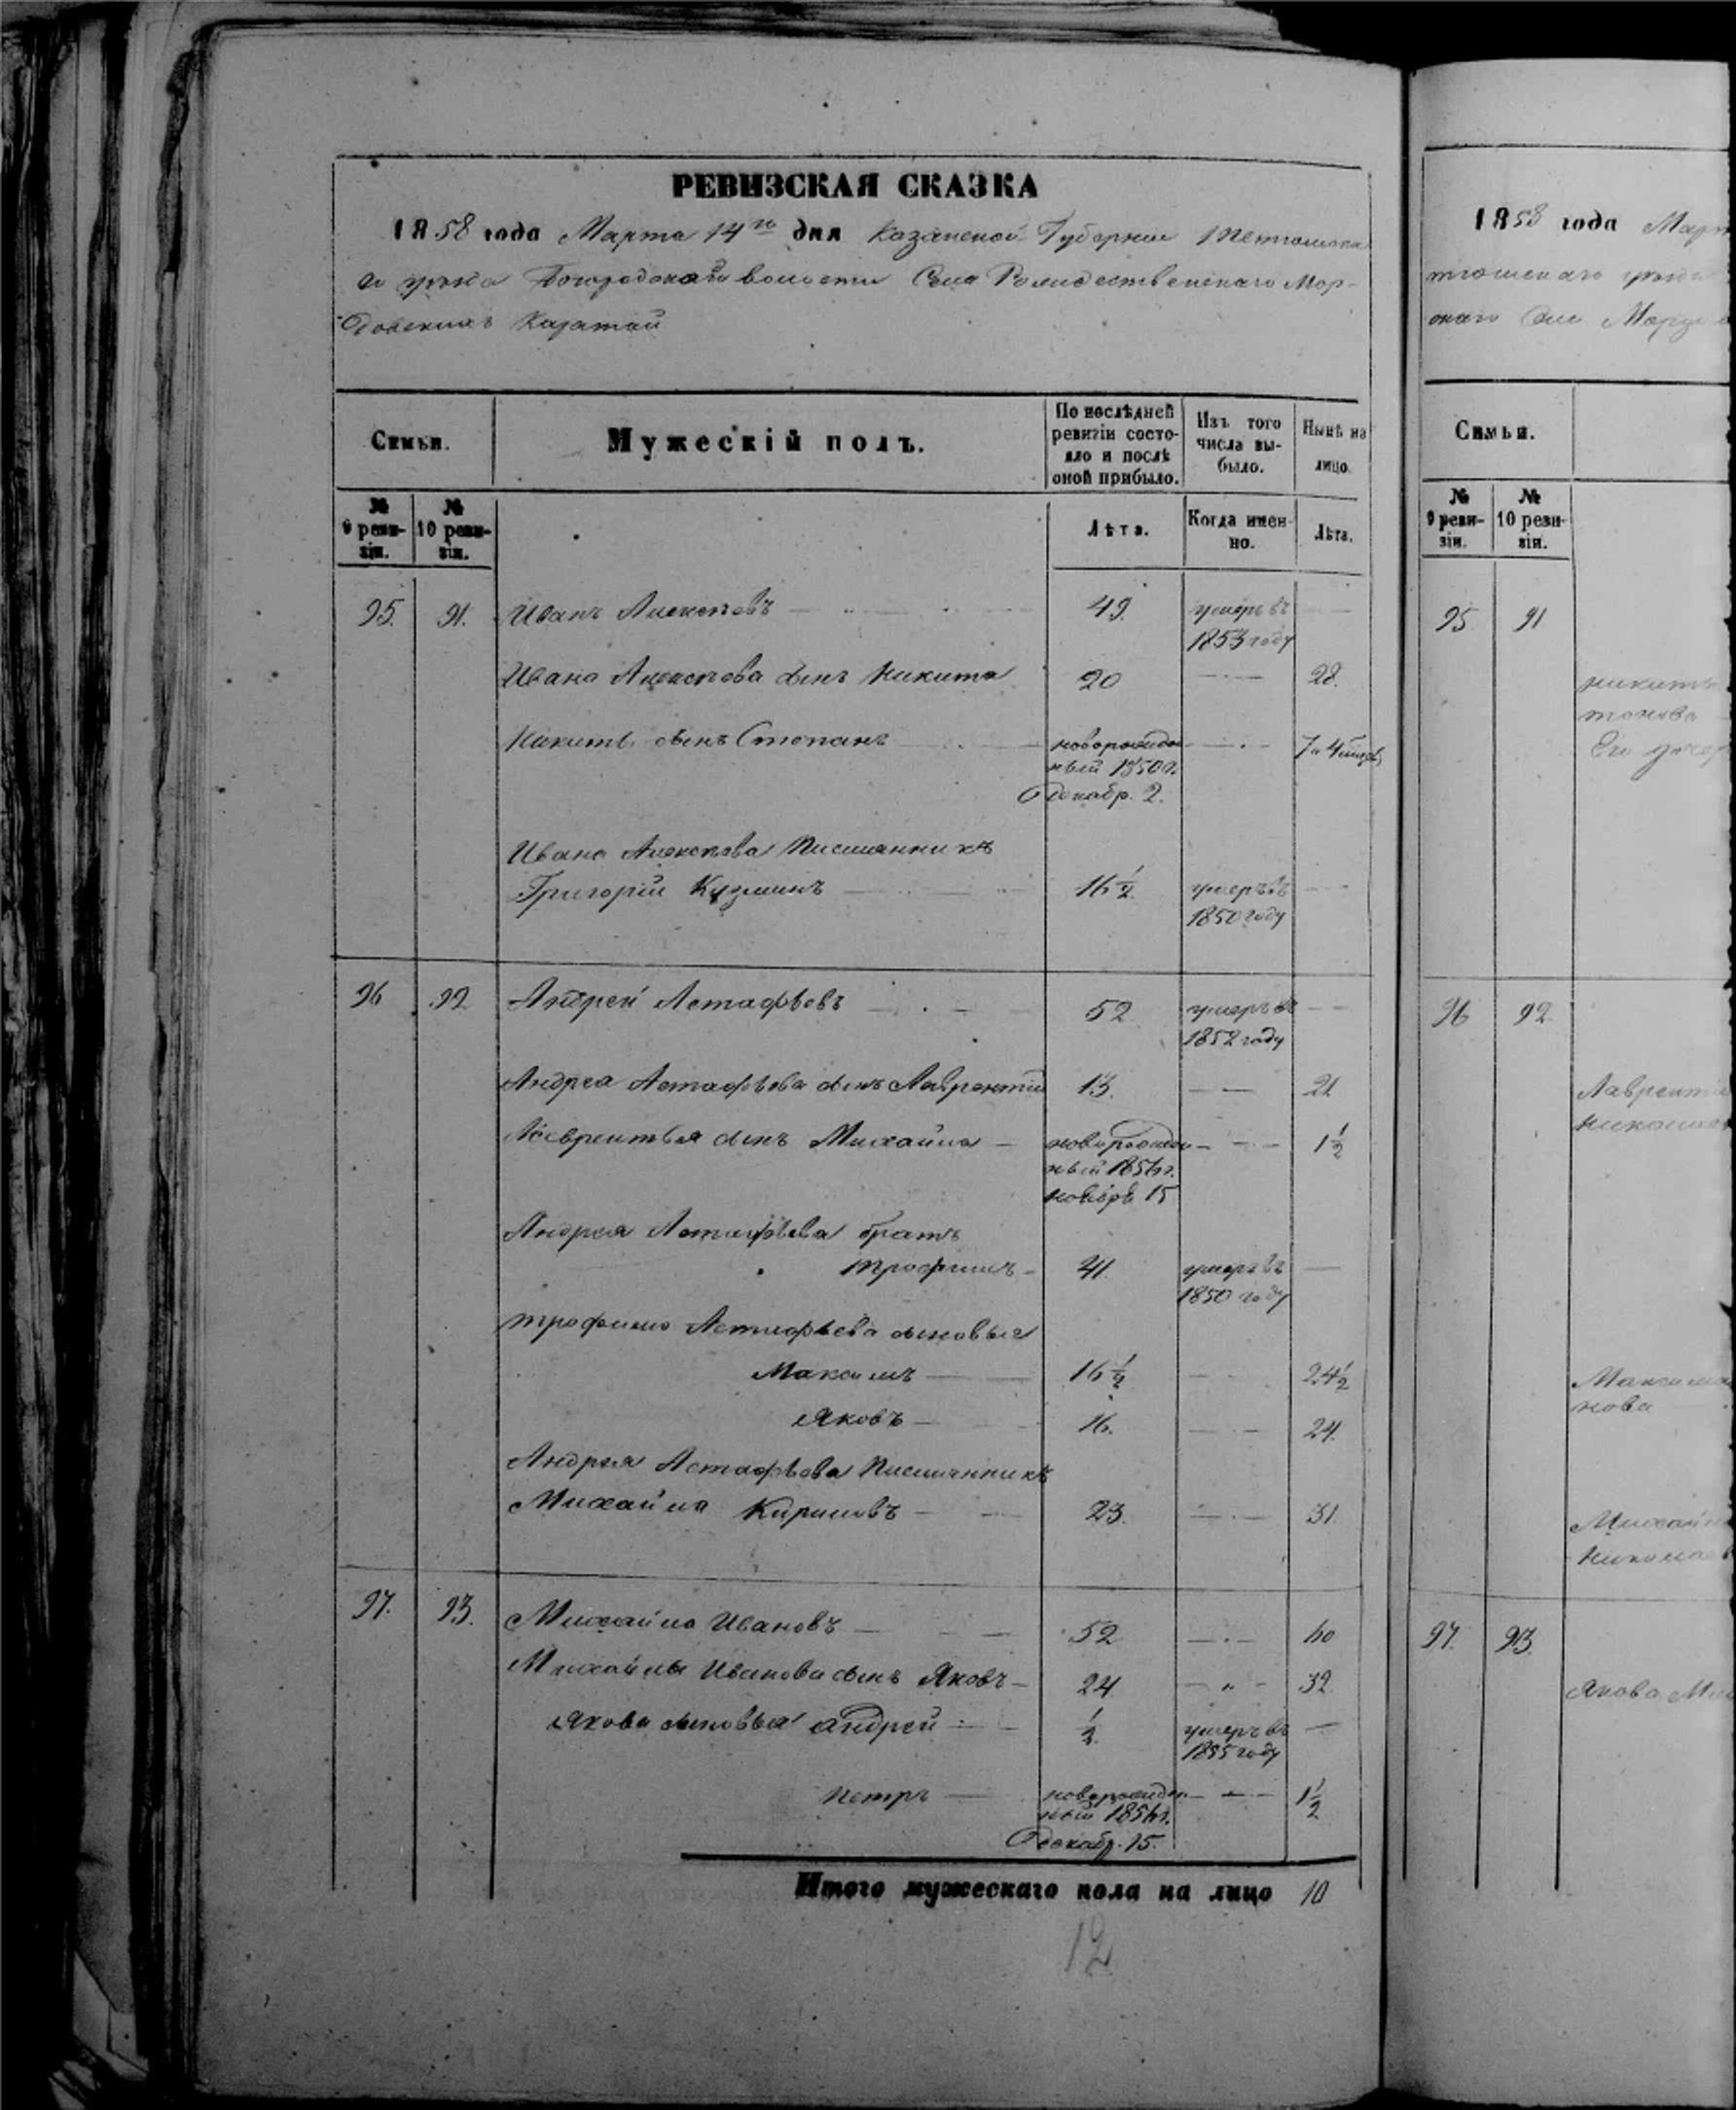 РЕВИЗСКАЯ СКАЗКА
1858 года Марта 14го дня Казанской Губернии Тетюшска
го уѣзда Богородской волости Села Рождественскаго Мор-
довскихъ Каратай
Семьи.
Мужескій полъ.
По послѣдней ревизіи состо-
яло и послѣ
оной прибыло.
Изъ того
числа вы-
было.
Нынѣ на
лицо.
№
9 реви-
зіи.
№
10 реви-
зіи.
Лѣта.
Когда имен-
но.
Лѣта.
95. 91. Иванъ Алексѣевъ 49. умеръ въ
1853 году
Ивана Алексѣева сынъ Никита 20 28.
Никиты сынъ Степанъ новорожден-
ный 1850 г.
декабр. 2.
Ивана Алексѣева Племянникъ
Григорій Кузминъ 16 1/2 умеръ въ
1850 году
96 92 Андрей Астафьевъ 52 умеръ въ
1852 году
Андрея Астафьева сынъ Лаврентій 13. 21
Лаврентья сынъ Михайла новорожден-
ный 1856 г.
ноября 15
1 1/2
Андрея Астафьева братъ
Трофимъ 41 умеръ въ
1850 году
Трофима Астафьева сыновья
Максимъ 16 1/2 24 1/2
Яковъ 16. 24.
Андрея Астафьева Племянникъ
Михайла Кириловъ 23. 31.
97. 93. Михайла Ивановъ 52 60
Михайлы Иванова сынъ Яковъ 24 32
Якова сыновья Андрей 1/2. умеръ въ
1855 году
Петръ новорожден-
ный 1856 г.
декабр. 15.
1 1/2
Итого мужескаго пола на лицо 10
12
1858 года Март
тюшскаго уѣзда
скаго Села Морд
Семьи.
№
9 реви-
зіи.
№
10 реви-
зіи.
95 91
Никиты
Его дочер
96 92.
Лаврентія
Николае
Максима
нова
Михайл
Николаев
97. 93.
Якова Ми